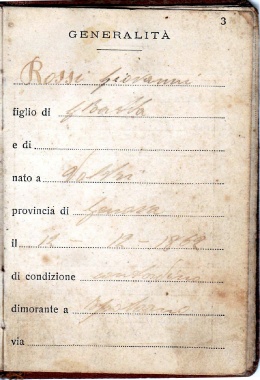 3
GENERALITÀ
Rossi Giovanni
figlio di
e di
nato a
provincia di Genova
il 12 - 12 - 1862
di condizione
dimorante a
via